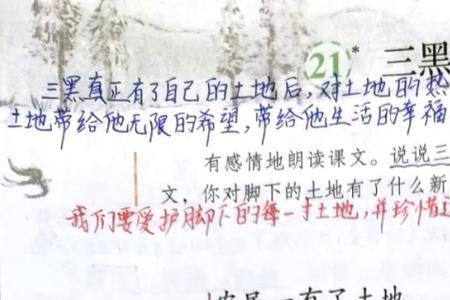 21* 三黑
三黑真正有了自己的土地后，对土地的热
土地带给他无限的希望，带给他生活的幸福
有感情地朗读课文。说说三
文，你对脚下的土地有了什么新
我们要爱护脚下的每一寸土地，并珍惜
有了土地